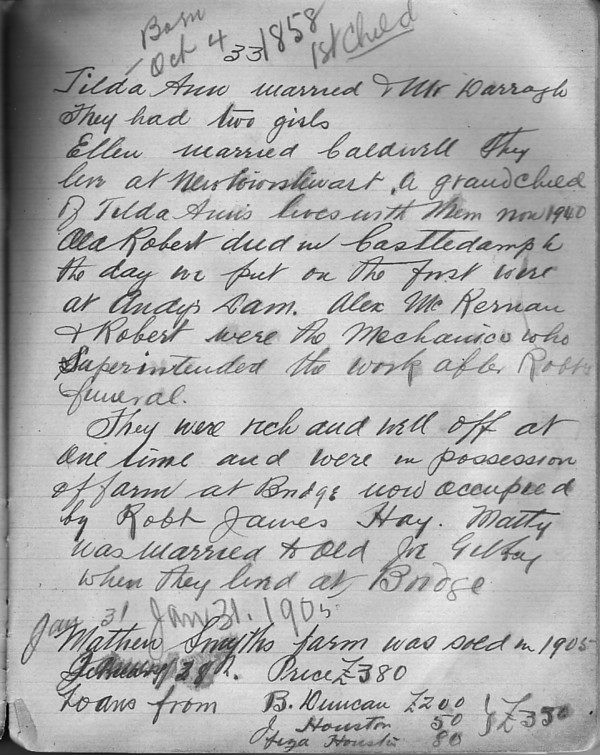 Born
Oct 4 1858
33
1st Child
Tilda Ann married Mr Darragh
They had two girls
Ellen married Caldwell They
live at Newtownstewart. A grandchild
of Tilda Ann's lives with them now 1940
Old Robert died in Castledamph
the day we put on the first wire
at Andys Dam. Alex McKernan
& Robert were the Mechanics who
Superintended the work after Robts
funeral.
They were rich and well off at
One time and were in possession
of farm at Bridge now occupied
by Robt James Hay. Matty
was Married to Old Joe
when they lived at Bridge
Jan 31 Jan 31. 1905
Mathew Smyths farm was sold in 1905
28th. Price £380
Loans from B. Duncan £200
J. Houston 50
Liza Houston 80
£330